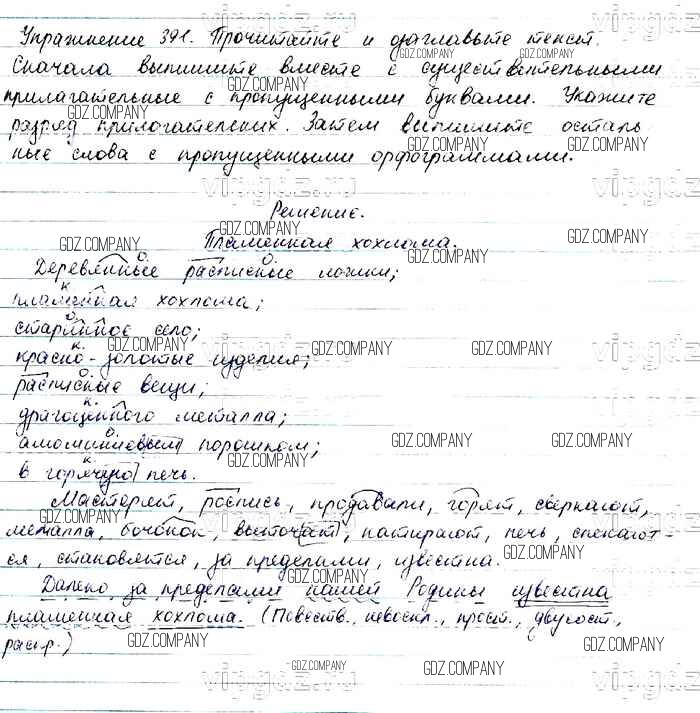 Упражнение 391. Прочитайте и озаглавьте текст.
Сначала выпишите вместе с существительными
прилагательные с пропущенными буквами. Укажите
разряд прилагательных. Затем выпишите осталь
ные слова с пропущенными орфограммами.
Решение.
Пламенная хохлома.
Деревянные расписные ложки;
пламенная хохлома;
старинное село;
красно-золотые изделия;
расписные вещи;
драгоценного металла;
алюминиевым порошком;
в горячую печь.
Мастерят, роспись, продавали, горят, сверкают,
металла, бочонок, вытачивают, натирают, печь, спекают-
ся, становятся, за пределами, известна.
Далеко за пределами нашей Родины известна
пламенная хохлома. (Повеств., невоскл., прост., двусост.,
распр.)
vipgdz.ru
GDZ.COMPANY